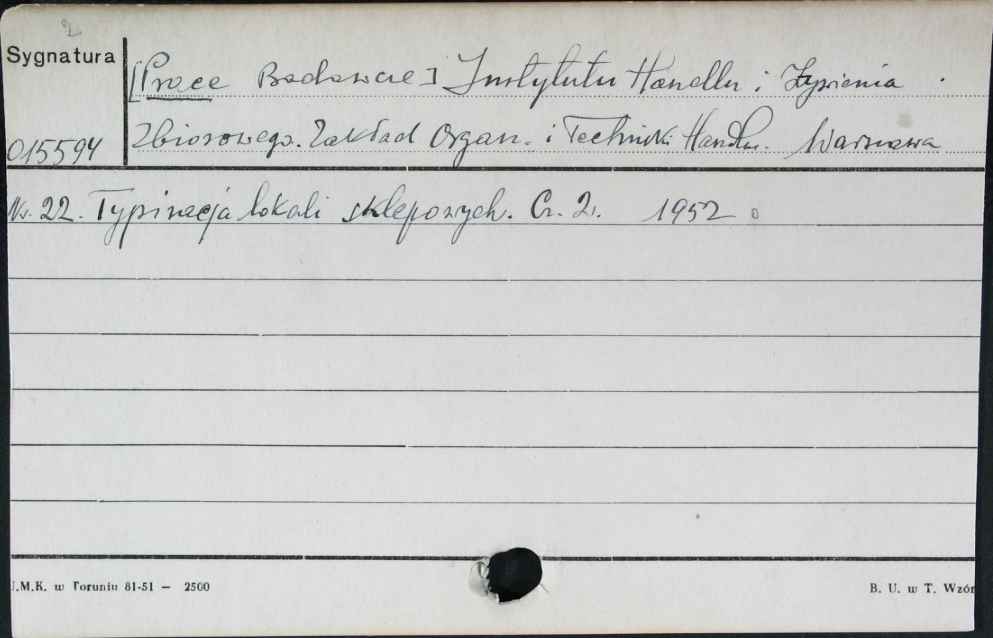 2
Sygnatura
[Prace Badawcze] Instytutu Handlu i Żywienia
015594
Zbiorowego. Zakład Organ. i Techniki Handlu. Warszawa
Nr. 22. Typizacja lokali sklepowych. Cz. 2. 1952
U.M.K. w Toruniu 81-51 — 2500
B. U. w T. Wzór